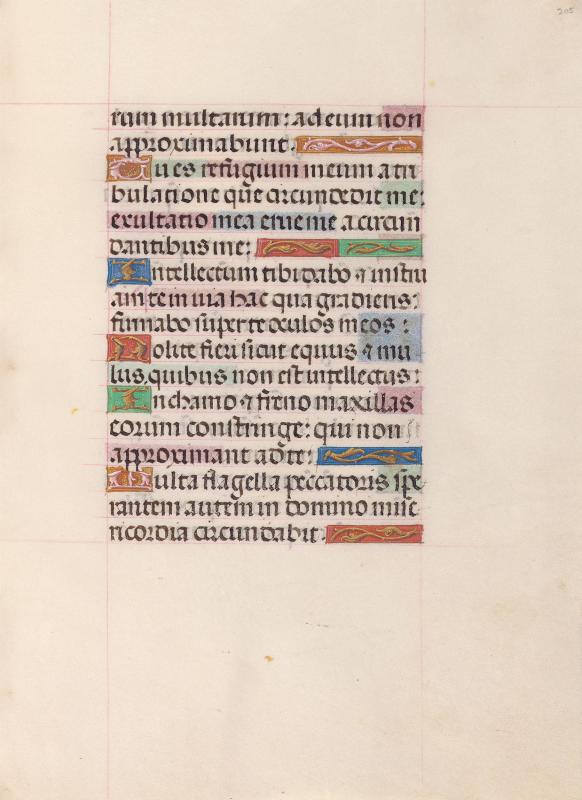 205
rum multarum: ad eum non
approximabunt.
Tu es refugium meum a tri
bulatione que circundedit me:
exultatio mea erue me a circun
dantibus me:
Intellectum tibi dabo & instru
am te in via hac qua gradieris:
firmabo super te oculos meos:
Nolite fieri sicut equus & mu
lus, quibus non est intellectus:
In chamo & freno maxillas
eorum constringe: qui non
approximant ad te:
Multa flagella peccatoris spe
rantem autem in domino mise
ricordia circundabit: